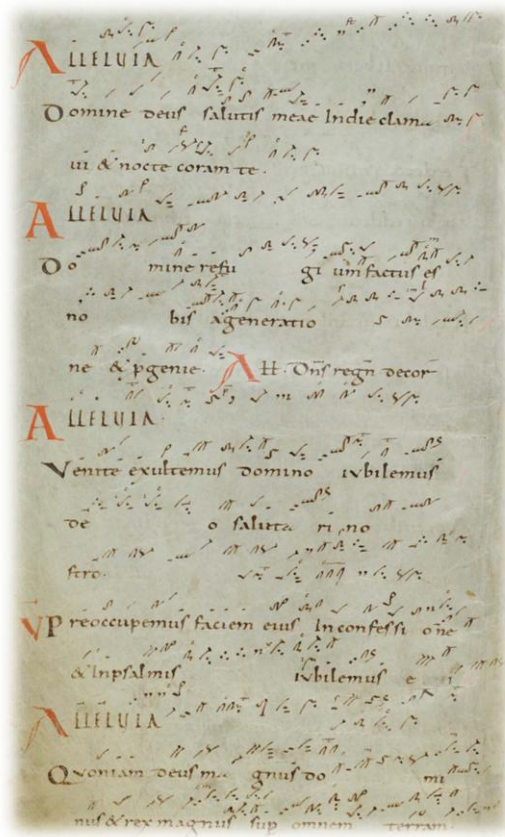 ALLELUIA
Domine deus salutis meae Indie clama
ui & nocte coram te.
ALLELUIA
Do mine refu gi um factus es
no bis a generatio
ne & pgenie. All. Dns regn decor
ALLELUIA
Venite exultemus domino iubilemus
de o saluta ri no
stro.
VP reoccupemus faciem eius In confessi one
& Inpsalmis iubilemus e i
ALLELUIA
Quoniam deus ma gnus do mi
nus & rex magnus sup omnem terram.